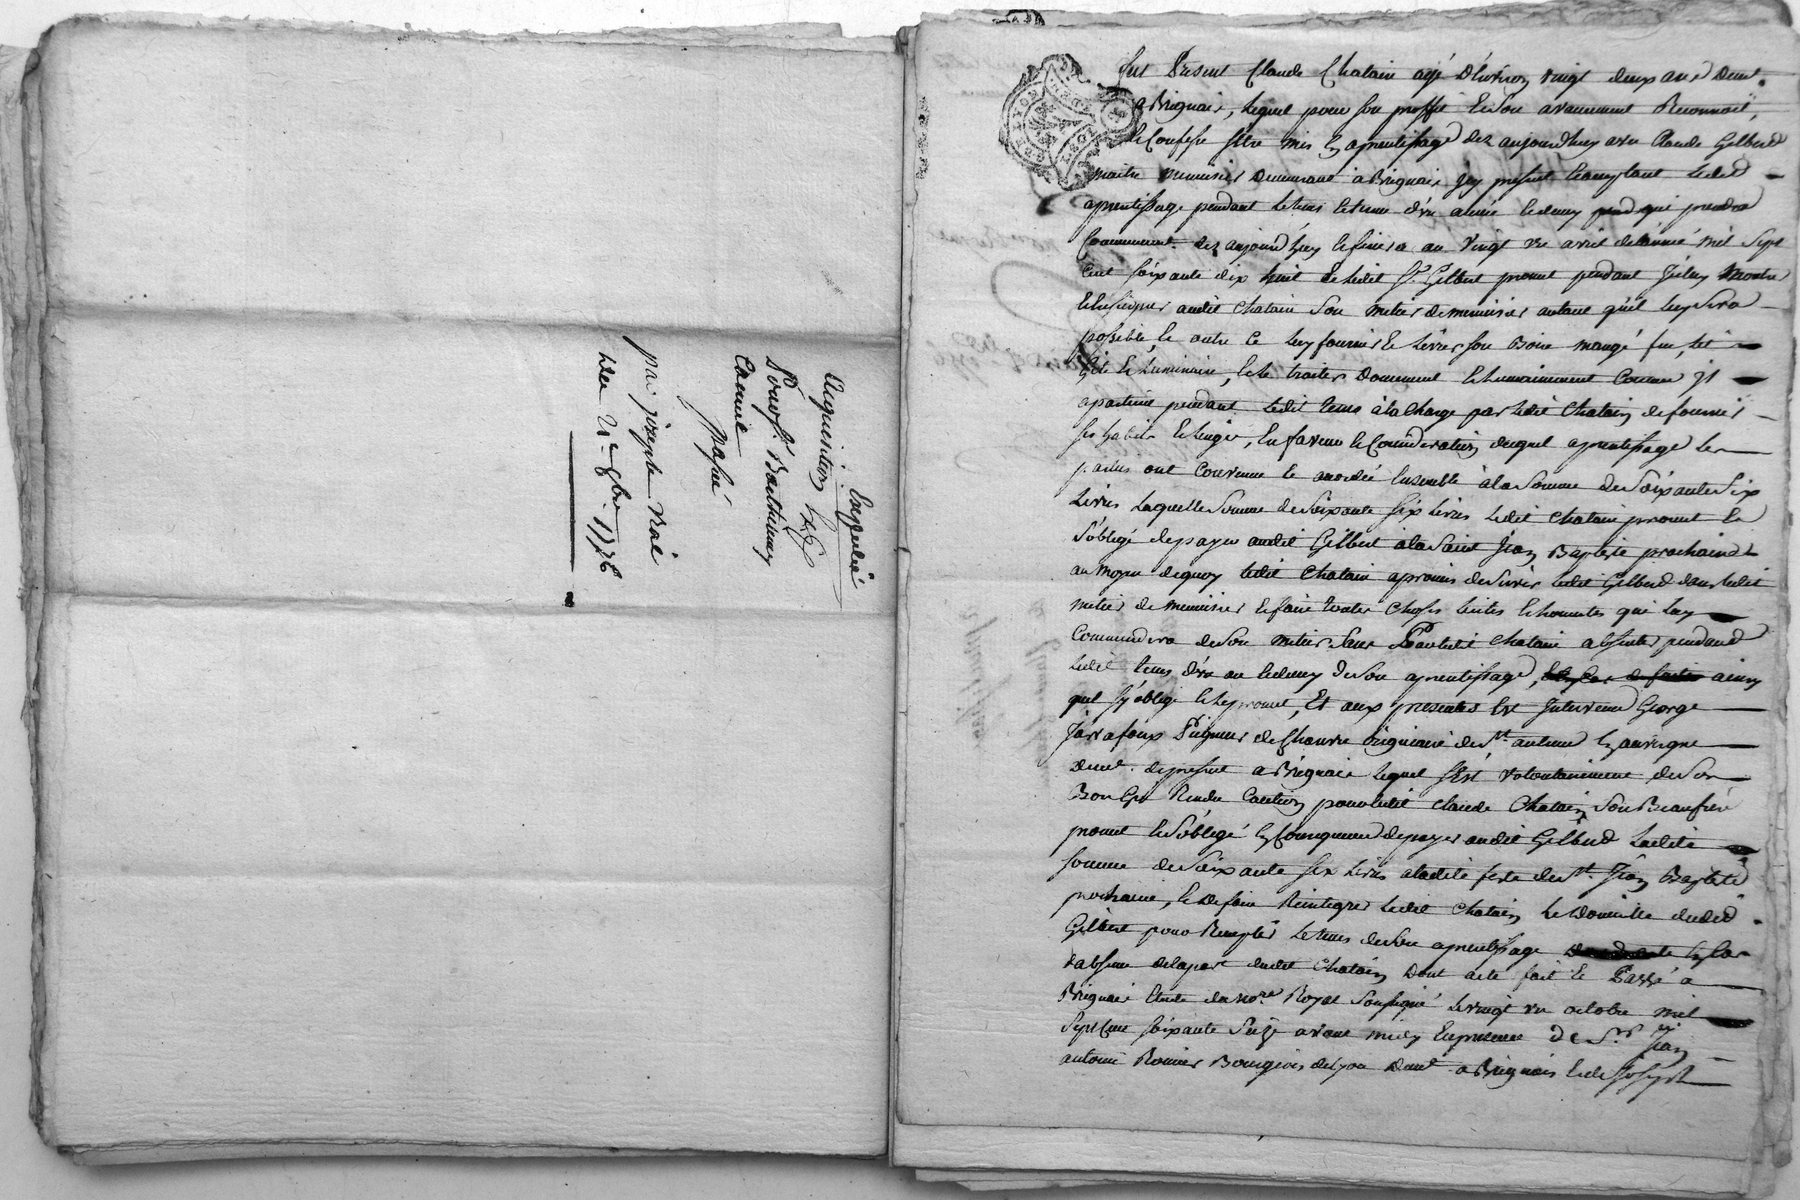 Expedié
acquisition
Pour Sr. Barthelemy
Camuel
passé
par jozeph Vial
Le 21e 8bre 1776
fut Present Claude Chatain agé d'environ vingt deux ans demt.
a Brignais, lequel pour son proffit et son avancement Reconnait,
et Confesse sêtre mis en aprentissage dez aujourdhuy avec Claude Gilbert
maitre menuisier demeurant à Brignais jcy present et acceptant ledit
aprentissage pendant le tems et terme d'un année et demy qui prendra
Commencemt. dez aujourd'huy et finira au vingt un avril de l'année mil Sept
Cent soixante dix huit et ledit Sr. Gilbert promet pendant jcelluy Montrer
et Enseigner audit Chatain Son metier de menuisier autant qu'il luy Sera
possible, et outre ce luy fournir et Livrer son Boire mangé feu, lit
Gite et Luminaire, et le traiter Doucement et humainement Comme jl
apartient pendant ledit tems à la Charge par ledit Chatain de fournir
ses habits et linges, En faveur et Consideration duquel aprentissage les
parties ont Convenu et accordé Ensemble à la Somme de Soixante Six
Livres Laquelle Somme de Soixante Six Livres Ledit Chatain promet et
S'oblige de payer audit Gilbert à la Saint Jean Baptiste prochaine
au moyen de quoy ledit Chatain a promis de Servir ledit Gilbert dans ledit
metier de menuisier et faire toutes Choses licites et honnetes qui luy
Commandera de Son metier Sans Pouvoir ledit Chatain absenter pendant
ledit tems d'un an et demy de Son aprentissage, ainsy
quil s'y oblige et le promet, Et aux presentes Est Intervenu George
Jarrafoux Pigneur de Chanvre originaire de St. antheme En auvergne
demt. de present a Brignais lequel s'Est volontairement de Son
Bon Gré Rendu Caution pour ledit Claude Chatain Son Beaufrere
promet et S'oblige En Consequence de payer audit Gilbert Ladite
Somme de Soixante Six Livres à ladite feste de St. Jean Baptiste
prochaine, et de faire Reintegrer ledit Chatain Le Domicille dudit
Gilbert pour Remplir Le tems de Son aprentissage En Cas
d'absence de la part dudit Chatain, Dont acte fait et Passé à
Brignais Etude du nore. Royal Soussigné Le vingt un octobre mil
Sept Cent Soixante Seize avant midy En presence de Sr. Jean
antoine Romier Bourgeois de Lyon demt. a Brignais Et de Sr. Joseph